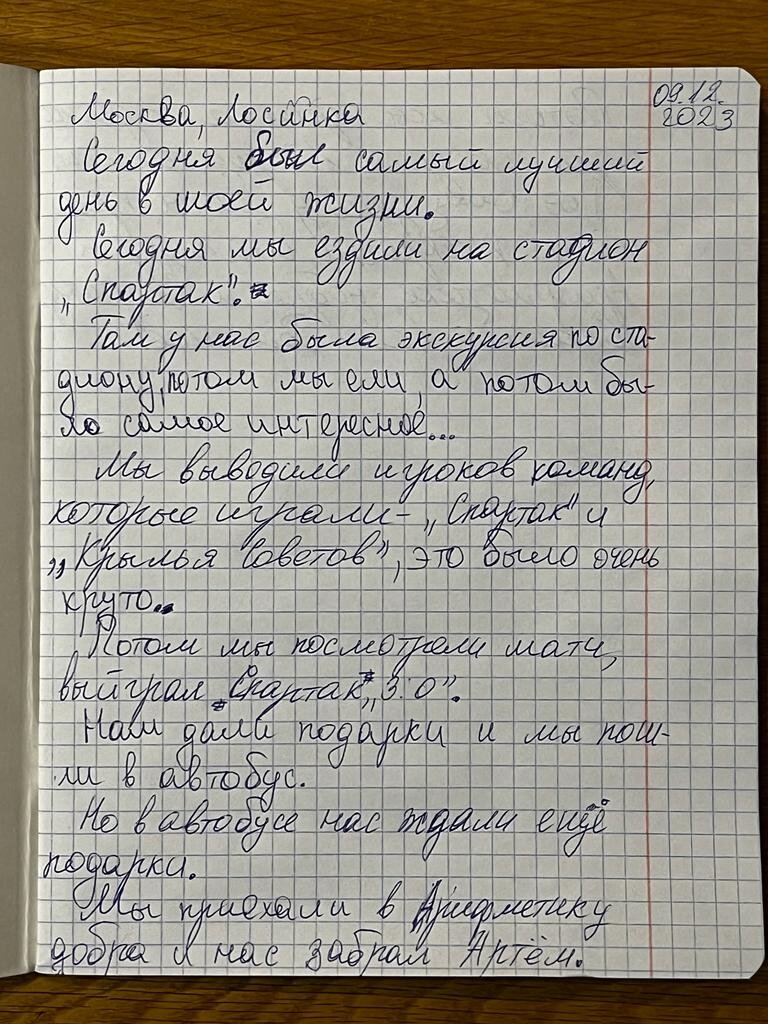 09.12.
2023
Москва, Лосинка
Сегодня был самый лучший
день в моей жизни.
Сегодня мы ездили на стадион
„Спартак".
Там у нас была экскурсия по ста-
диону, потом мы ели, а потом бы-
ло самое интересное...
Мы выводили игроков команд,
которые играли- „Спартак" и
„Крылья Советов", это было очень
круто..
Потом мы посмотрели матч,
выйграл Спартак „3:0".
Нам дали подарки и мы пош-
ли в автобус.
Но в автобусе нас ждали ещё
подарки.
Мы приехали в Арифметику
добра и нас забрал Артём.